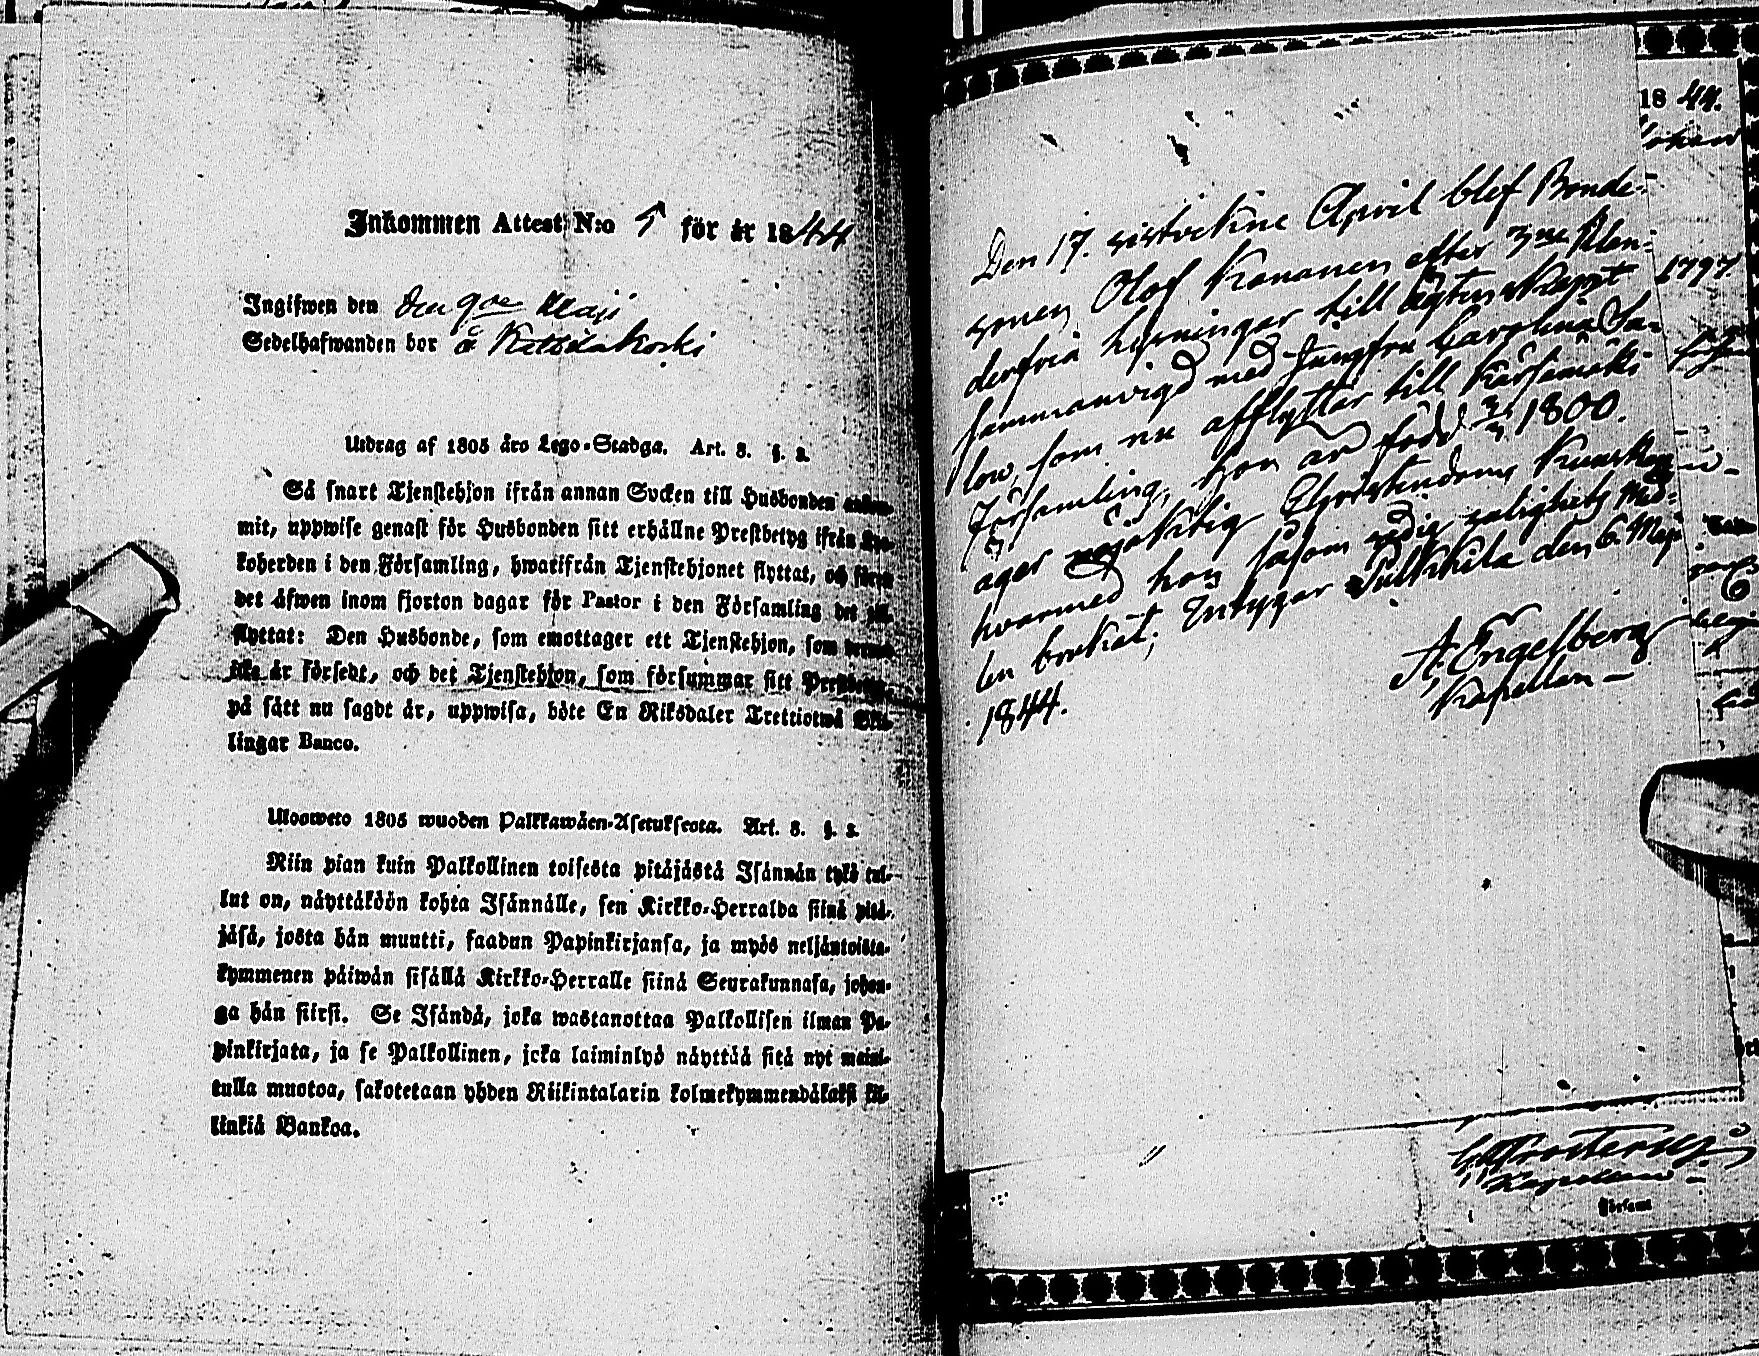 Inkommen Attest N:o 5 för år 1844
Ingifwen den den 9de Maji
Sedelhafwanden bor å
Utdrag af 1805 års Lego-Stadga. Art. 8. §. 2.
Så snart Tjenstehjon ifrån annan Socken till Husbonden
mit, uppwise genast för Husbonden sitt erhållne Prestbetyg ifrån
koherden i den Församling, hwarifrån Tjenstehjonet flyttat, och
det åfwen inom fjorton dagar för Pastor i den Församling det
flyttat: Den Husbonde, som emottager ett Tjenstehjon, som
icke är försedt, och det Tjenstehjon, som försummar sitt
på sätt nu sagdt är, uppwisa, böte En Riksdaler Trettiotwå
lingar Banco.
Ulosweto 1805 wuoden Palkkawäen-Asetuksesta. Art. 8. §. 2.
Niin pian kuin Palkollinen toisesta pitäjästä Isännän tykö tul-
lut on, näyttäköön kohta Isännälle, sen Kirkko-Herralda siinä pitä-
jäsä, josta hän muutti, saadun Papinkirjansa, ja myös neljäntoista-
kymmenen päiwän sisällä Kirkko-Herralle siinä Seurakunnasa, johon-
ga hän siirsi. Se Isändä, joka wastanottaa Palkollisen ilman Pa-
pinkirjata, ja se Palkollinen, joka laiminlyö näyttää sitä nyt mainit-
tulla muotoa, sakotetaan yhden Riikintalarin kolmekymmendäkaksi kil-
linkiä Bankoa.
Den 17. sistvekne April blef Bonde-
sonen Olof Kananen efter 3ne
derfria lysningar till Ägtenskapst
sammanvigd med Jungfru Carolina Sa-
low, som nu afflyttar till Kärsämäki
Församling; hon är född 1800.
äger Christendoms Kunskap
hvarmed hon såsom salighets Med-
len brukat; Intygar Pulkkila den 6. Maji
1844.
A. Engelberg
Kapellan
1844.
1797
Kapellan
Församl